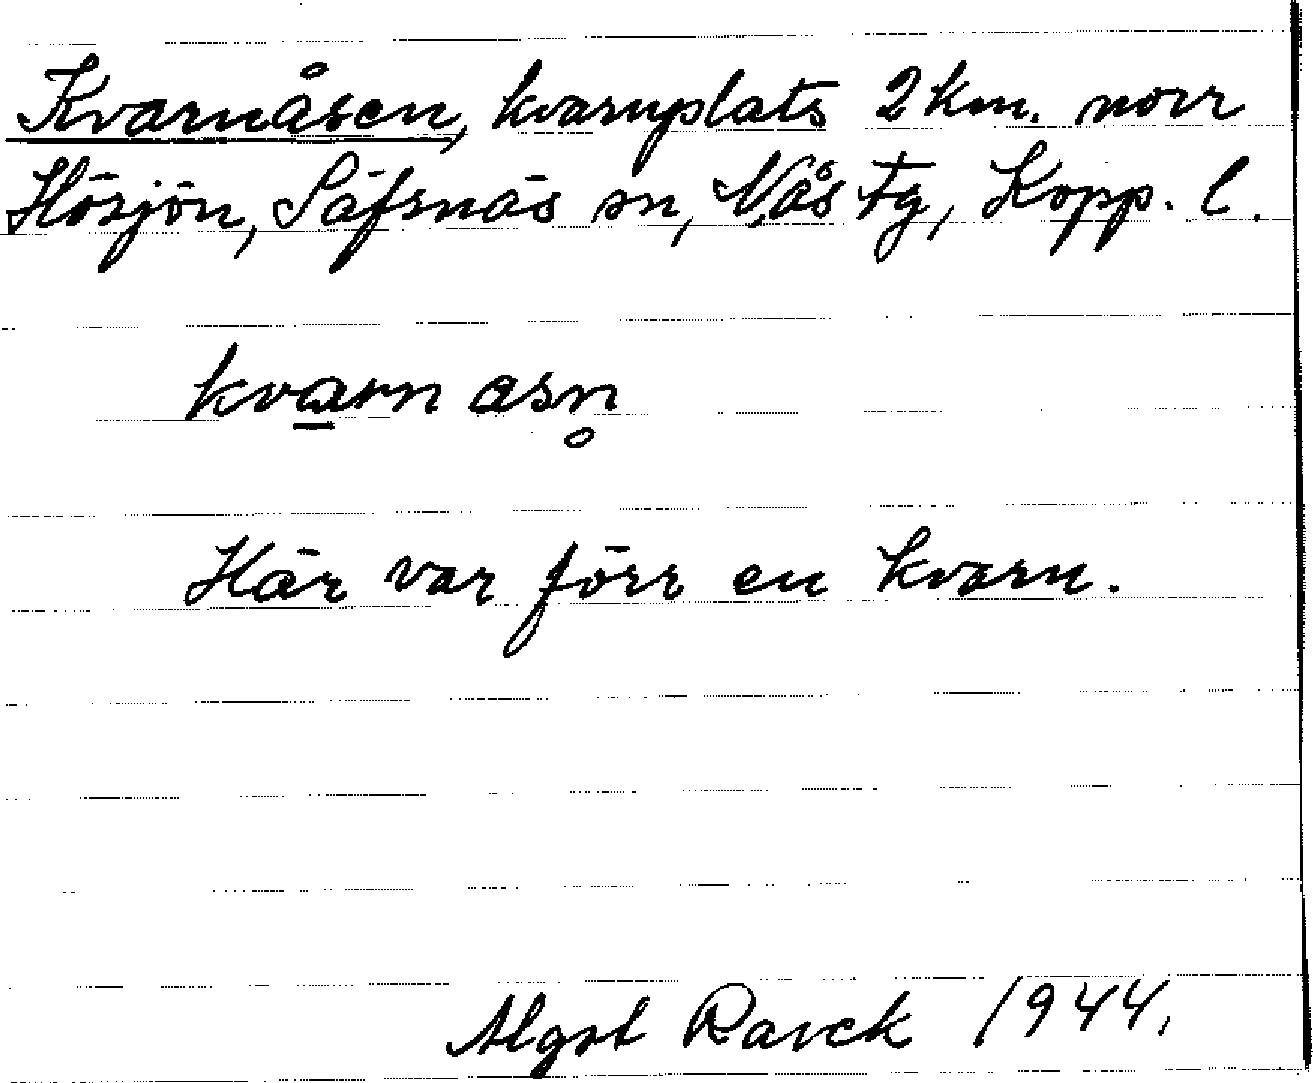 Kvarnåsen, kvarnplats 2 km. norr
Hösjön, Säfsnäs sn, Nås Tg, Kopp. l.
kvarn åsn
Här var förr en kvarn.
Algot Ravck 1944.